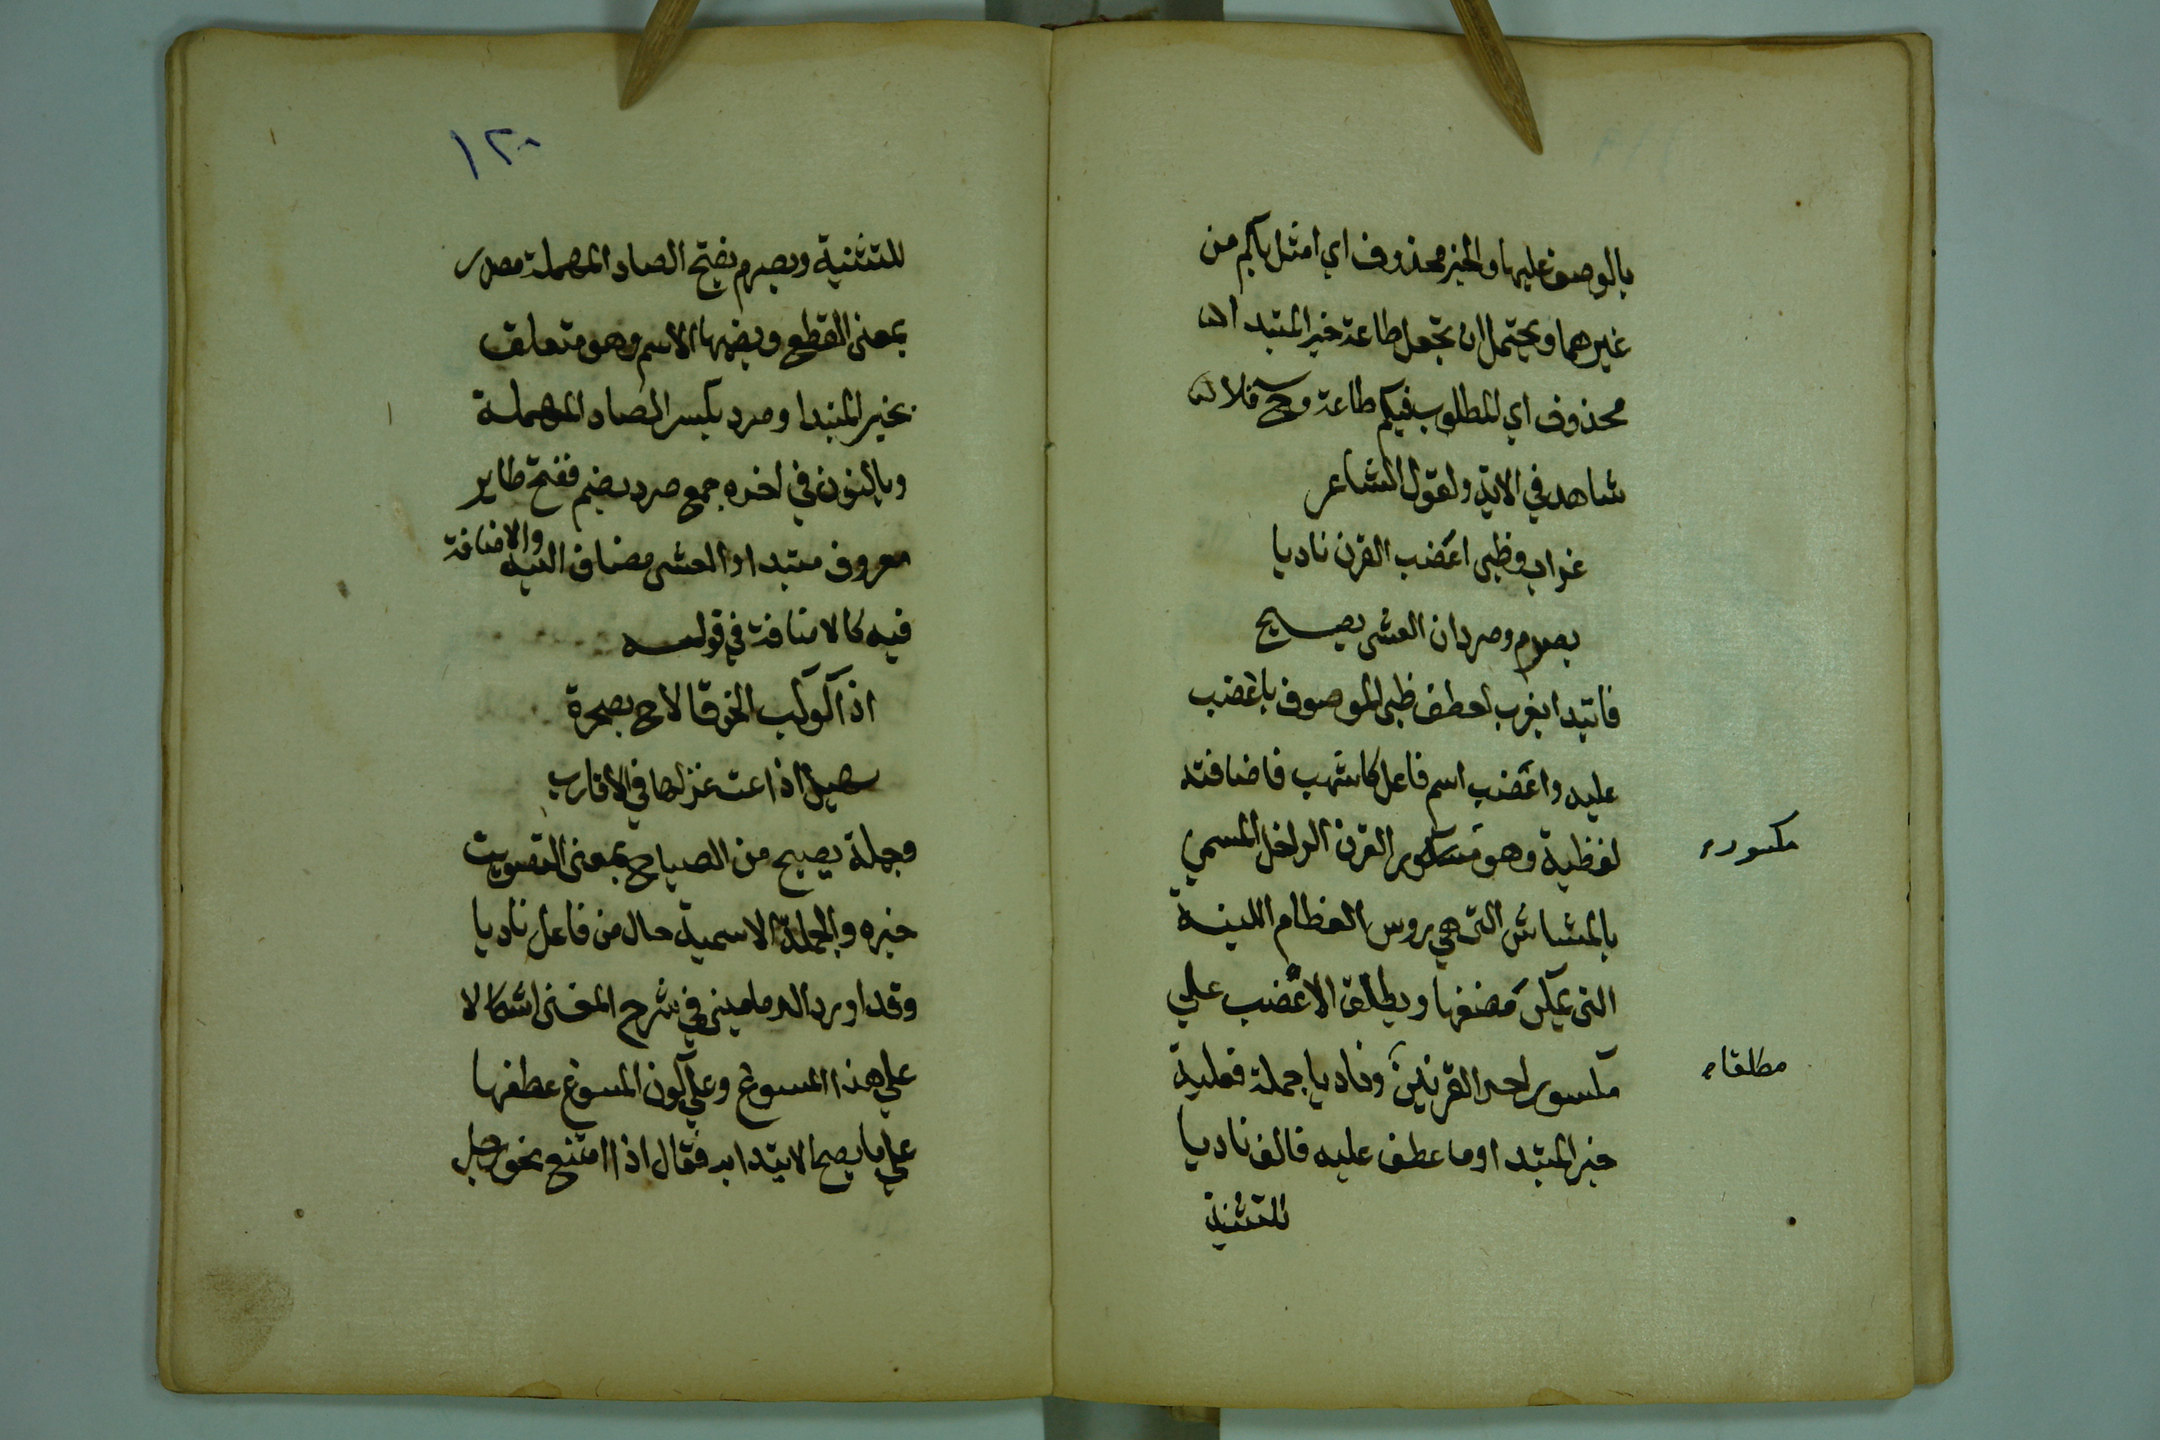 بالوصف عليها والخبر محذوف اي امثل بكم من
غيرهما ويحتمل ان تجعل طاعة خبر المبتدا
محذوف اي المطلوب فيكم طاعة وح فلا
شاهد في الاية ولقول الشاعر
غراب وظبي اعضب القرن ناديا
بصرم وصردان العشى يصيح
فابتدا بغرب لعطف ظبى الموصوف باعضب
عليه واعضب اسم فاعل كاشهب فاضافته
لفظية وهو مكسور القرن الداخل المسمي
مكسور
بالمشاش التى هي روس العظام اللينة
التى يمكن مضغها ويطلق الاعضب علي
مكسور احد القرنين وناديا جملة فعلية
مطلقا
خبر المبتدا وما عطف عليه فالف ناديا
للتثنية
١٢٠
للتثنية وبصرم بفتح الصاد المهملة مصدر
بمعنى القطع وبضمها الاسم وهو متعلق
بخبر المبتدا وصرد بكسر الصاد المهملة
وبالنون في اخره جمع صرد بضم ففتح طاير
معروف مبتدا والعشى مضاف اليه والاضافة
فيه كالاضافة في قوله
اذا كوكب الخرقا لاح بصحرة
سهيل اذاعت غزلها في الاقارب
وجملة يصيح من الصياح بمعنى التصويت
خبره والجملة الاسمية حال من فاعل ناديا
وقد اورد الدماميني في شرح المغنى اشكالا
علي هذا المسوغ وعلي كون المسوغ عطفها
علي ما يصح الابتدا به فقال اذا امتنع نحو رجل